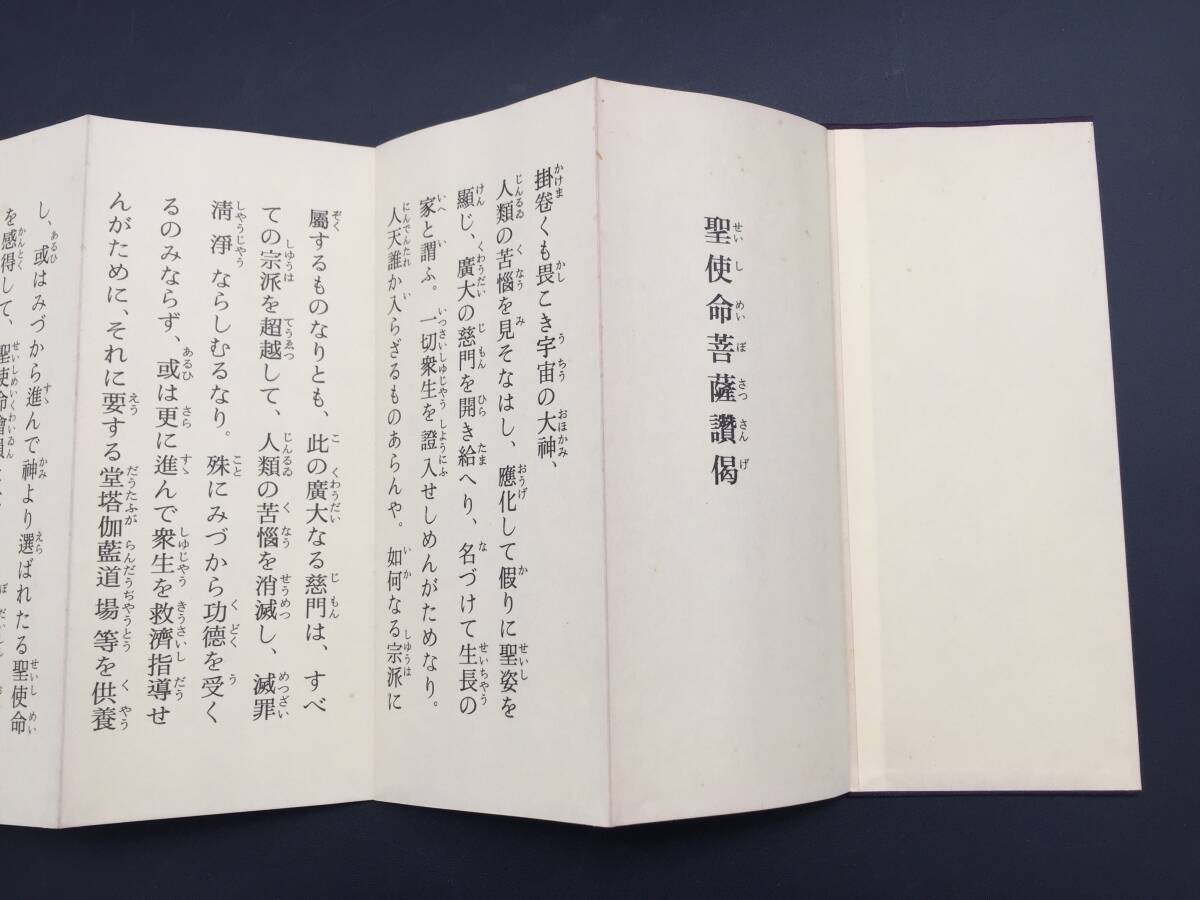 聖使命菩薩讚偈
掛卷くも畏こき宇宙の大神、
人類の苦惱を見そなはし、應化して假りに聖姿を
顯じ、廣大の慈門を開き給へり、名づけて生長の
家と謂ふ。一切衆生を證入せしめんがためなり。
人天誰か入らざるものあらんや。如何なる宗派に
屬するものなりとも、此の廣大なる慈門は、すべ
ての宗派を超越して、人類の苦惱を消滅し、滅罪
淸淨ならしむるなり。殊にみづから功德を受く
るのみならず、或は更に進んで衆生を救濟指導せ
んがために、それに要する堂塔伽藍道場等を供養
し、或はみづから進んで神より選ばれたる聖使命
を感得して、聖使命會員